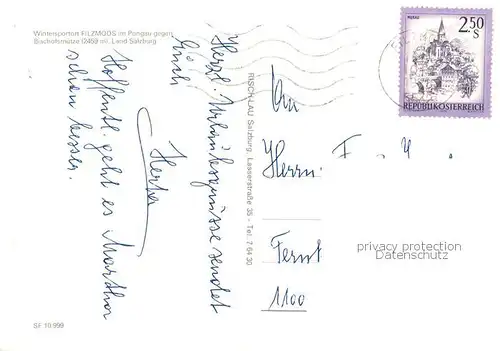 Wintersportort FILZMOOS im Pongau gegen
Bischofsmütze (2459 m), Land Salzburg
Herzl. Urlaubsgrüsse sendet
Euch
Herbert
Hoffentl. geht es Martha
schon besser.
SF 10.999
RISCH-LAU Salzburg, Lasserstraße 35 - Tel. 7 64 30
An
Herrn F. H.
1100
MURAU
2.50
S
REPUBLIK ÖSTERREICH
privacy protection
Datenschutz